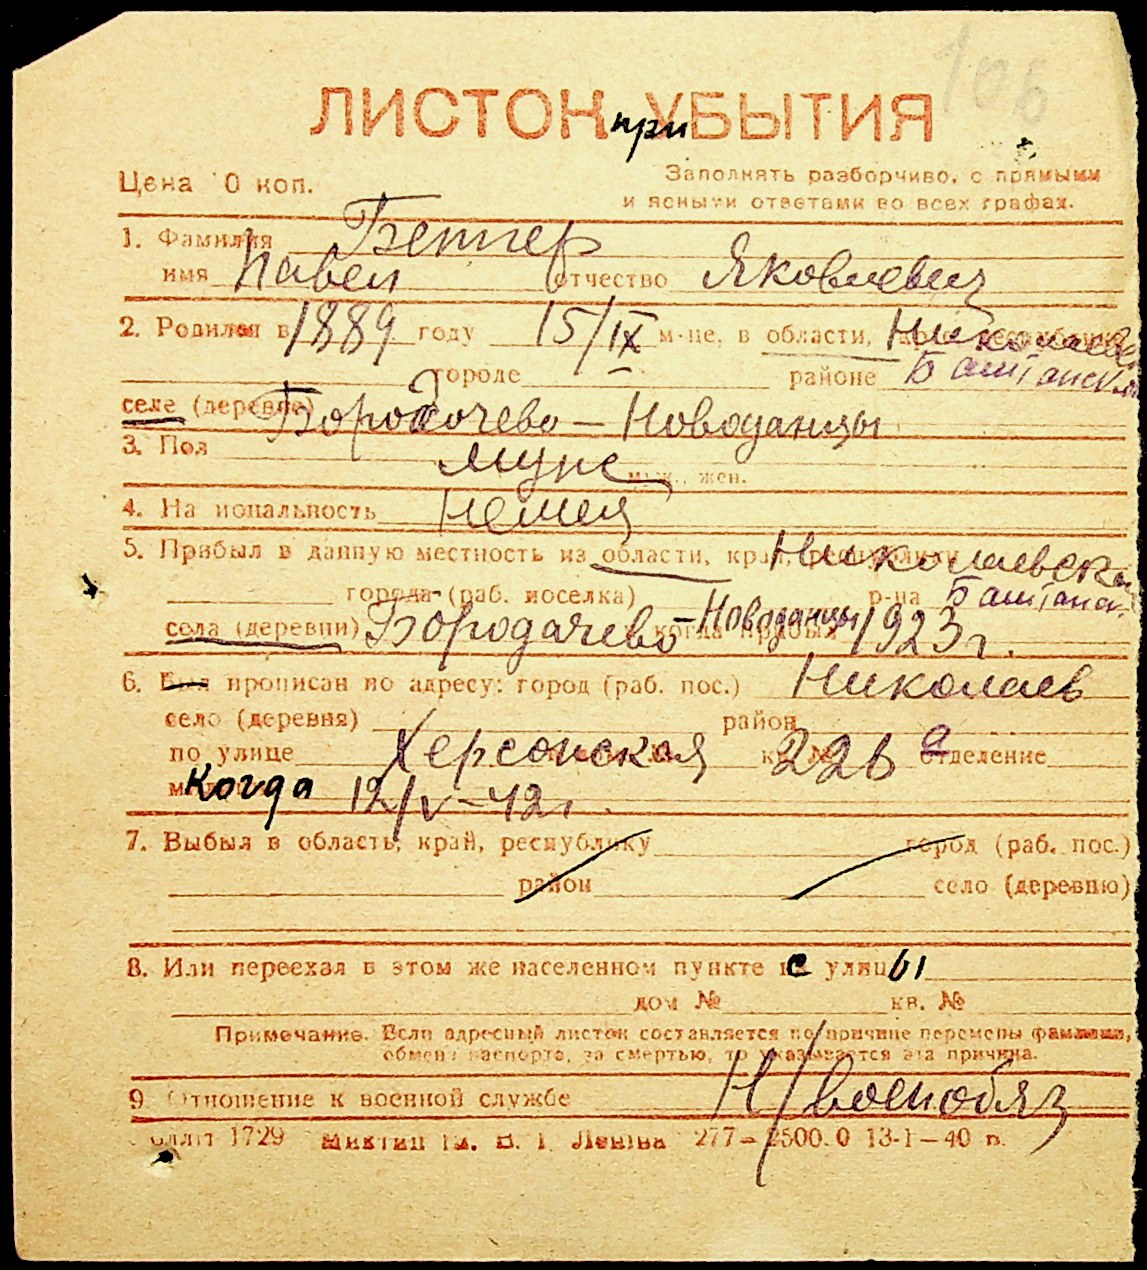 106
ЛИСТОК при УБЫТИЯ
Цена 10 коп.
Заполнять разборчиво, с прямыми
и ясными ответами во всех графах.
1. Фамилия Беттер
имя Павел отчество Яковлевич
2. Родился в 1889 году 15/IX м-це, в области, Николаевск
городе – районе Баштанск
селе (деревне) Бородочево – Новоданцы
3. Пол муж муж., жен.
4. Национальность немец
5. Прибыл в данную местность из области, край, Николаевск
города (раб. поселка) р-на Баштанск
села (деревни) Бородачево – Новоданцы и когда прибыл 1923 г.
6. Был прописан по адресу: город (раб. пос.) Николаев
село (деревня) район
по улице Херсонская кв. № 22б отделение
Когда 12/V – 42 г.
7. Выбыл в область, край, республику город (раб. пос.)
район село (деревню)
8. Или переехал в этом же населенном пункте с улицы
дом № кв. №
Примечание. Если адресный листок составляется по причине перемены фамилии,
обмена паспорта, за смертью, то указывается эта причина.
9 Отношение к военной службе Н/военобяз
1729 им. В. І. Леніна 277 – 2500.0 13-1 – 40 р.